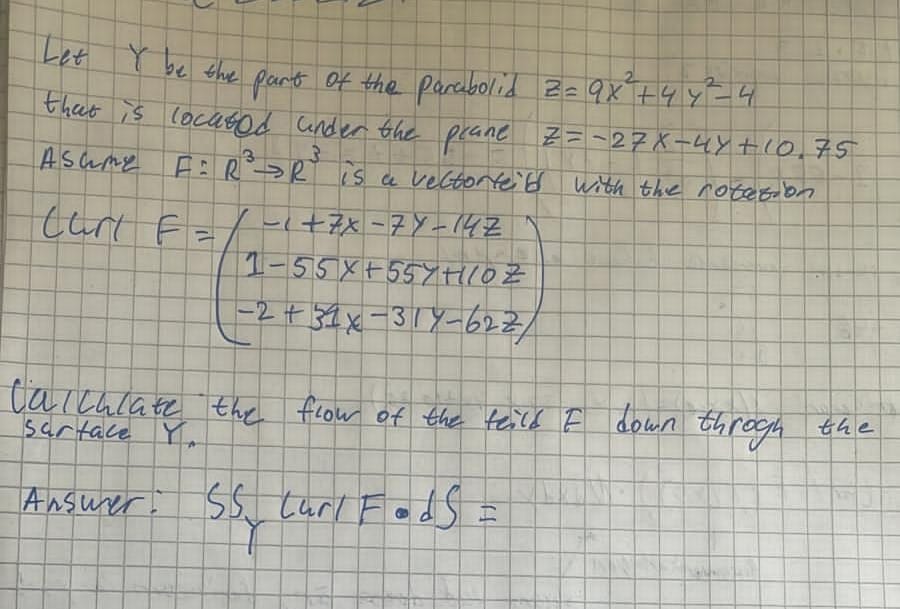 Let Y be the part of the Parabolid z = 9x²+4y²-4
that is locatod under the plane z = -27x-4y+10.75
Asume F: R³→R³ is a vectorfeild with the rotation
Curl F = ( -1+7x-7y-14z
1-55x+55y+110z
-2+31x-31y-62z )
Calculate the flow of the feild F down throgh the
surface Y.
Answer: SS_Y Curl F • dS =